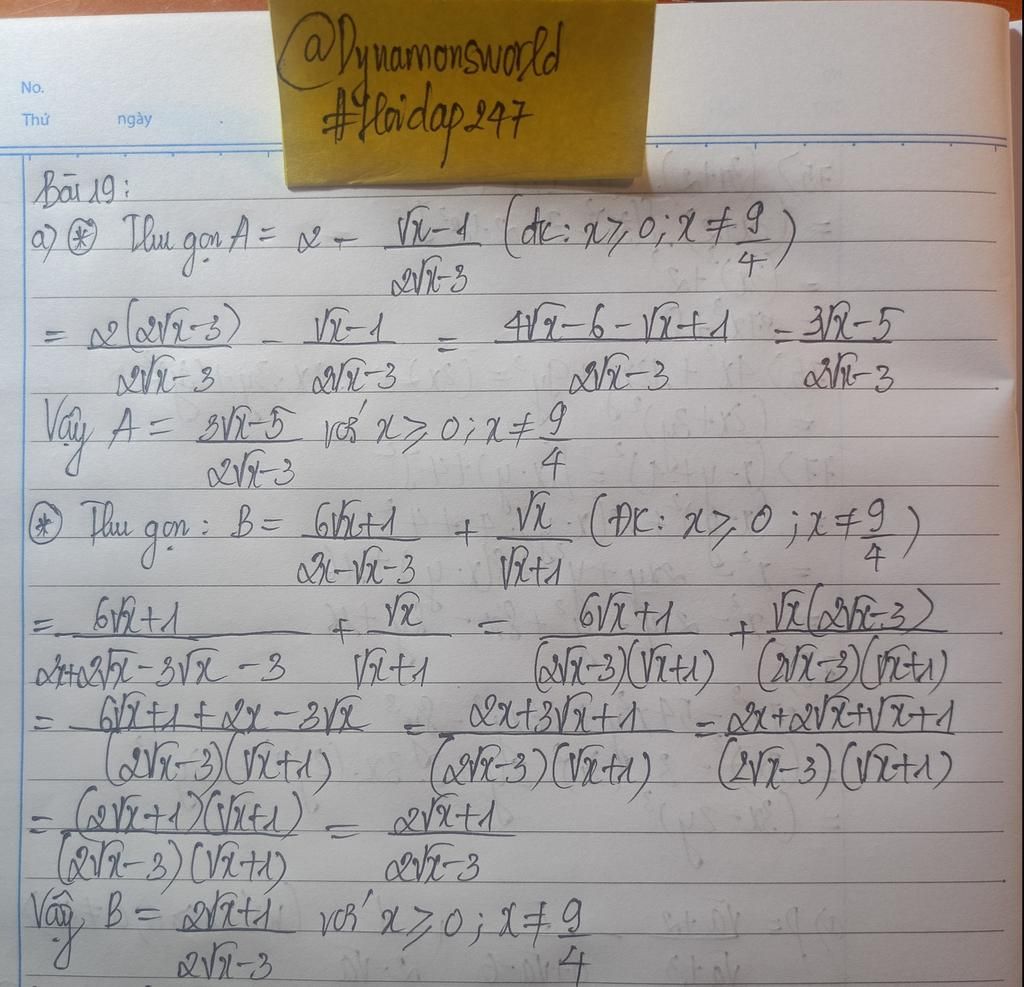 @Dynamonsworld
#Hoidap247
No.
Thứ ngày .
Bài 19:
a) ⊛ Thu gọn A = 2 - (√x-1)/(2√x-3) (đk: x ≥ 0; x ≠ 9/4)
= 2(2√x-3)/(2√x-3) - (√x-1)/(2√x-3) = (4√x-6-√x+1)/(2√x-3) = (3√x-5)/(2√x-3)
Vậy A = (3√x-5)/(2√x-3) với x ≥ 0; x ≠ 9/4
⊛ Thu gọn: B = (6√x+1)/(2x-√x-3) + √x/(√x+1) (ĐK: x ≥ 0; x ≠ 9/4)
= (6√x+1)/(2x+2√x-3√x-3) + √x/(√x+1) = (6√x+1)/((2√x-3)(√x+1)) + √x(2√x-3)/((2√x-3)(√x+1))
= (6√x+1+2x-3√x)/((2√x-3)(√x+1)) = (2x+3√x+1)/((2√x-3)(√x+1)) = (2x+2√x+√x+1)/((2√x-3)(√x+1))
= (2√x+1)(√x+1)/((2√x-3)(√x+1)) = (2√x+1)/(2√x-3)
Vậy B = (2√x+1)/(2√x-3) với x ≥ 0; x ≠ 9/4